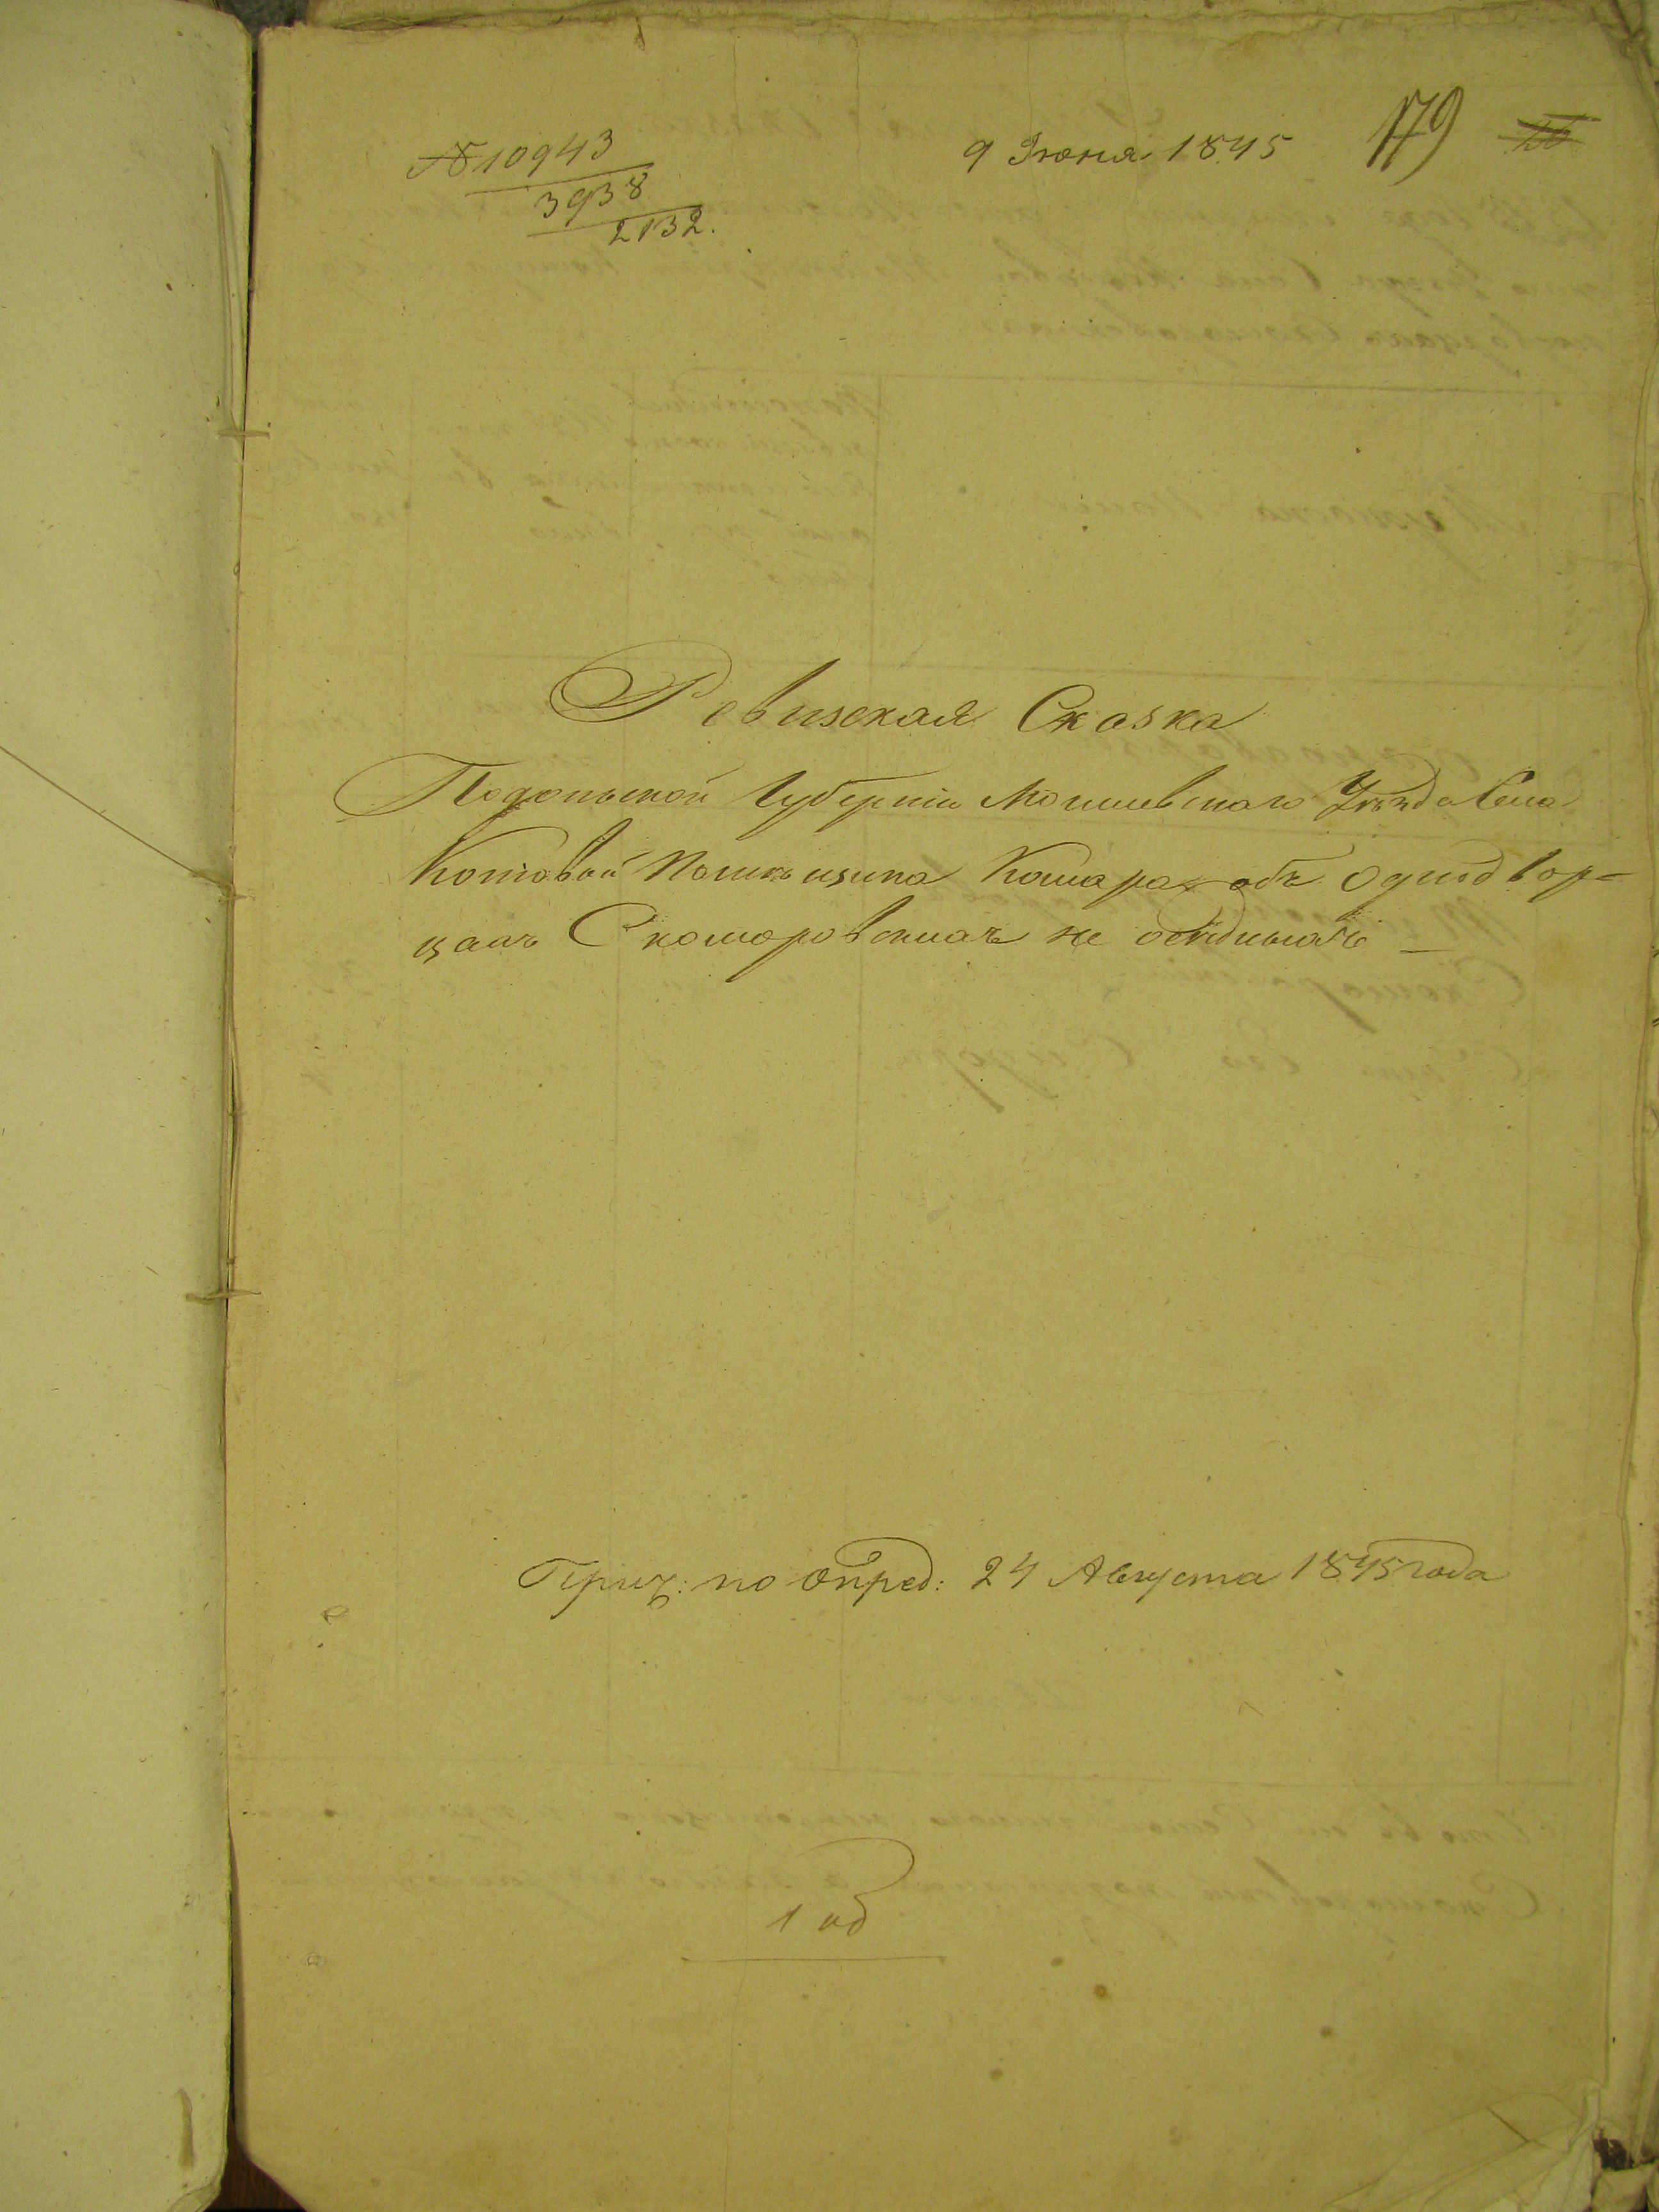 № 10943
3938
2132.
9 Іюня 1845
179
Ревизская Сказка
Подольской Губерніи Могилевскаго Уѣзда Села
Котовой Помѣщика Комара объ однодвор=
цахъ Скоморовскихъ не осѣдлыхъ
Прич: по опред: 24 Августа 1845 года
1 об